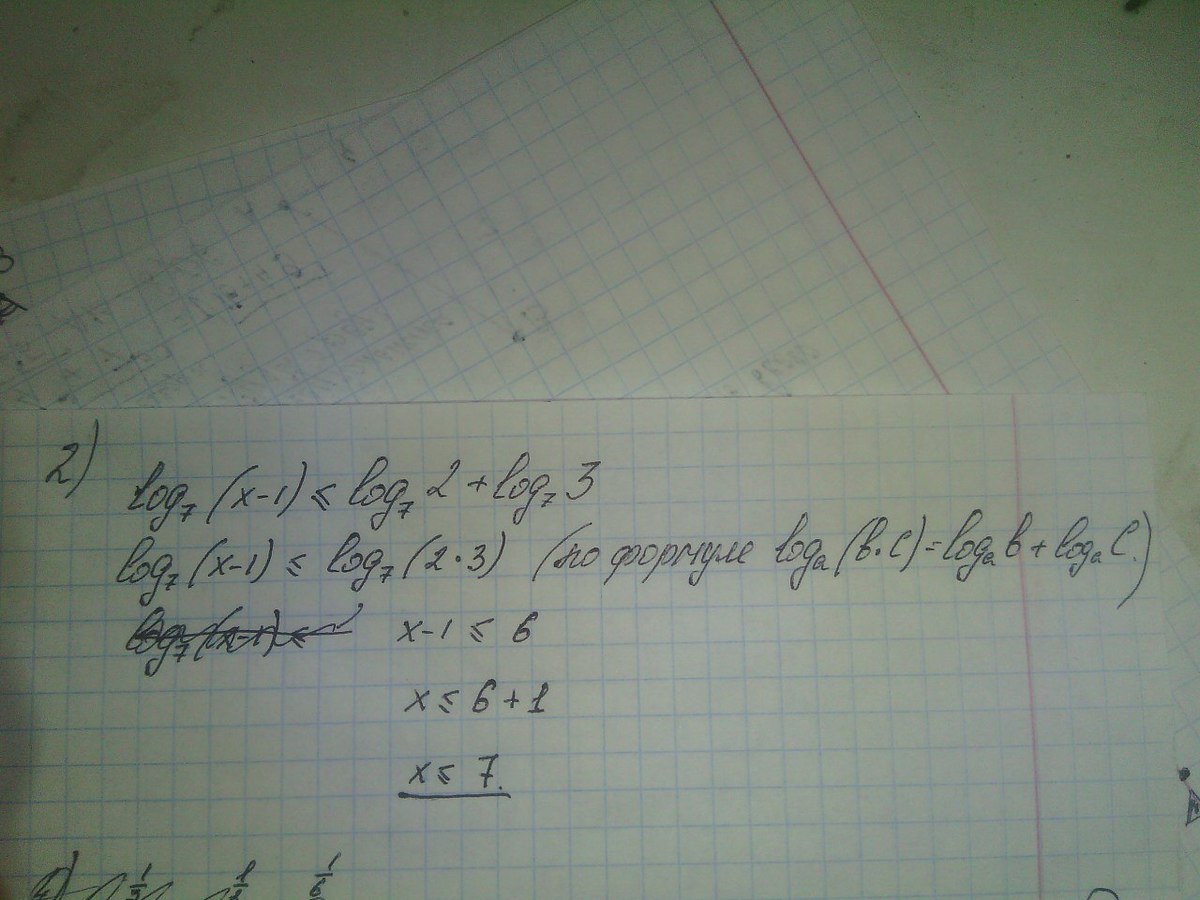 2)
log₇(x-1) ≤ log₇2 + log₇3
log₇(x-1) ≤ log₇(2·3) (по формуле logₐ(b·c)=logₐb+logₐc.)
x-1 ≤ 6
x ≤ 6+1
x ≤ 7.